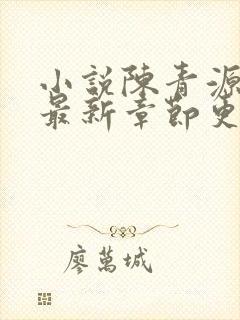 小説陳青源
最新章節更
廖萬城